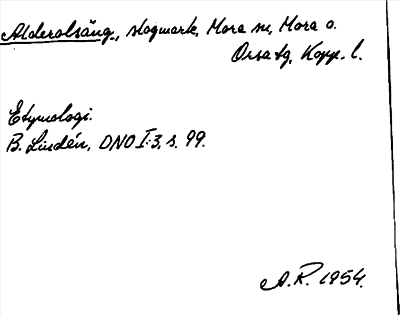 Alderolsäng, skogmark, Mora sn, Mora o.
Orsa tg, Kopp. l.
Etymologi.
B. Lindén, DNO I:3, s. 99.
A.R. 1954.